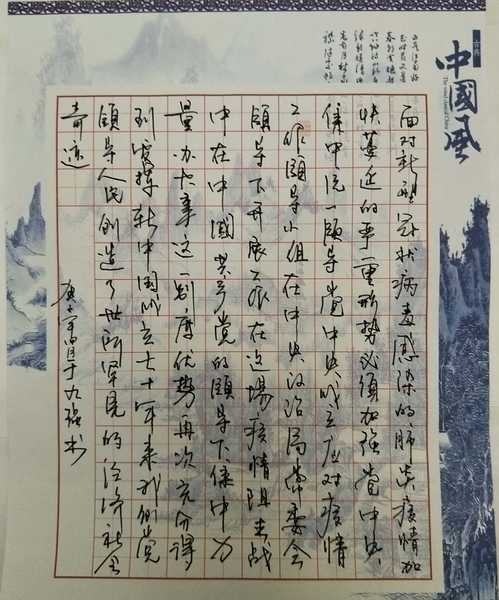 中國風
面对新型冠状病毒感染的肺炎疫情加
快蔓延的严重形势必须加强党中央
集中统一领导党中央成立应对疫情
工作领导小组在中央政治局常委会
领导下开展工作在这场疫情阻击战
中在中国共产党的领导下集中力
量办大事这一制度优势再次充分得
到发挥新中国成立七十年来我们党
领导人民创造了世所罕见的经济社会
奇迹
庚子年四月于九强书